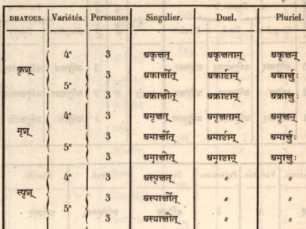 DHATOUS. Variétés. Personnes Singulier. Duel. Pluriel.
4e 3 अकृक्षत् अकृक्षताम् अकृक्षन्
कृश्
5e 3 अकार्क्षीत् अकार्ष्टाम् अकार्क्षुः
3 अक्राक्षीत् अक्राष्टाम् अक्राक्षुः
4e 3 अमृक्षत् अमृक्षताम् अमृक्षन्
मृश्
5e 3 अमार्क्षीत् अमार्ष्टाम् अमार्क्षुः
3 अम्राक्षीत्
4e 3 अस्पृक्षत् " "
स्पृश्
5e 3 अस्पार्क्षीत् " "
3 अस्प्राक्षीत् " "